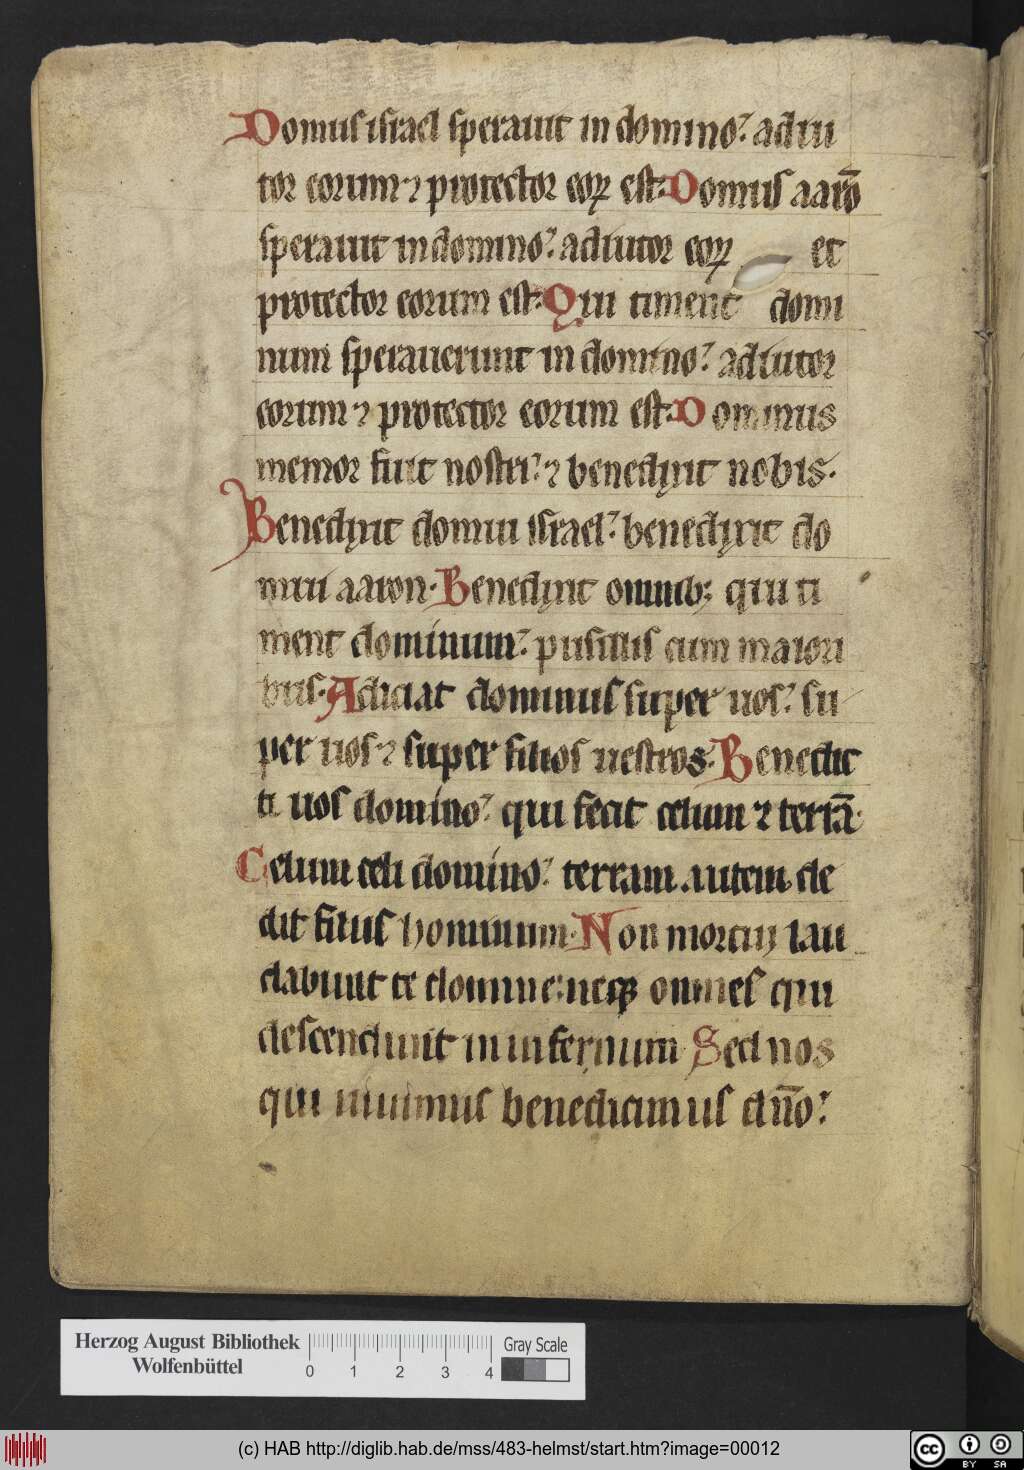 Domus israel sperauit in domino. adiu
tor eorum ⁊ protector eoꝝ est. Domus aarō
sperauit in domino. adiutor eoꝝ et
protector eorum est. Qui timent domi
num sperauerunt in domino. adiutor
eorum ⁊ protector eorum est. Dominus
memor fuit nostri. ⁊ benedixit nobis.
Benedixit domui israel. benedixit do
mui aaron. Benedixit omnibꝫ qui ti
ment dominum. pusillis cum maiori
bus. Adiciat dominus super uos. su
per uos ⁊ super filios uestros. Benedic
ti uos domino. qui fecit celum ⁊ terrā.
Celum celi domino. terram autem de
dit filius hominum. Non mortui lau
dabunt te domine. neqꝫ omnes qui
descendunt in infernum Sed nos
qui uiuimus benedicimus dn̄o.
Herzog August Bibliothek
Wolfenbüttel
0 1 2 3 4
Gray Scale
(c) HAB http://diglib.hab.de/mss/483-helmst/start.htm?image=00012
cc BY SA